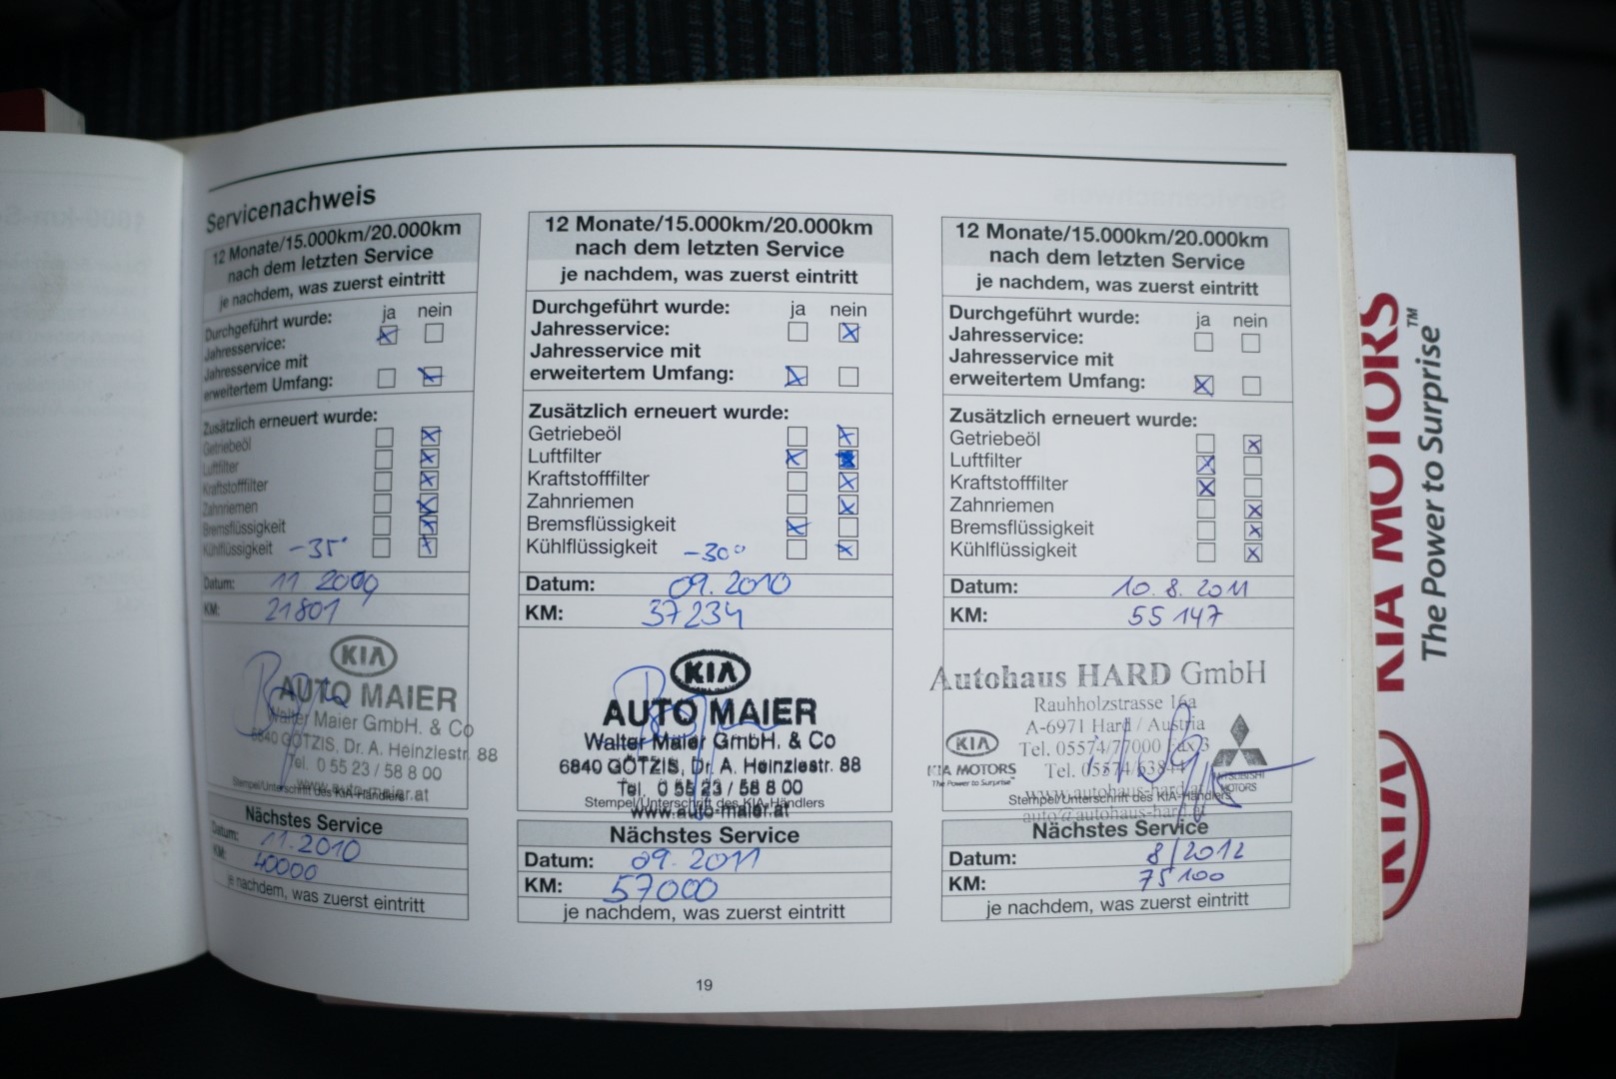 Servicenachweis
12 Monate/15.000km/20.000km
nach dem letzten Service
je nachdem, was zuerst eintritt
Durchgeführt wurde: ja nein
Jahresservice:
Jahresservice mit
erweitertem Umfang:
Zusätzlich erneuert wurde:
Getriebeöl
Luftfilter
Kraftstofffilter
Zahnriemen
Bremsflüssigkeit
Kühlflüssigkeit -35°
Datum: 11 2009
KM: 21801
KIA
AUTO MAIER
Walter Maier GmbH. & Co
6840 GÖTZIS, Dr. A. Heinzlestr. 88
Tel. 0 55 23 / 58 8 00
www.auto-maier.at
Stempel/Unterschrift des KIA-Händlers
Nächstes Service
Datum: 11.2010
KM: 40000
je nachdem, was zuerst eintritt
12 Monate/15.000km/20.000km
nach dem letzten Service
je nachdem, was zuerst eintritt
Durchgeführt wurde: ja nein
Jahresservice:
Jahresservice mit
erweitertem Umfang:
Zusätzlich erneuert wurde:
Getriebeöl
Luftfilter
Kraftstofffilter
Zahnriemen
Bremsflüssigkeit
Kühlflüssigkeit -30°
Datum: 09.2010
KM: 37234
KIA
AUTO MAIER
Walter Maier GmbH. & Co
6840 GÖTZIS, Dr. A. Heinzlestr. 88
Tel. 0 55 23 / 58 8 00
Stempel/Unterschrift des KIA-Händlers
www.auto-maier.at
Nächstes Service
Datum: 09.2011
KM: 57000
je nachdem, was zuerst eintritt
12 Monate/15.000km/20.000km
nach dem letzten Service
je nachdem, was zuerst eintritt
Durchgeführt wurde: ja nein
Jahresservice:
Jahresservice mit
erweitertem Umfang:
Zusätzlich erneuert wurde:
Getriebeöl
Luftfilter
Kraftstofffilter
Zahnriemen
Bremsflüssigkeit
Kühlflüssigkeit
Datum: 10.8.2011
KM: 55147
Autohaus HARD GmbH
Rauhholzstrasse 16a
A-6971 Hard / Austria
Tel. 05574/77000
Tel. 05574/63844
KIA
KIA MOTORS
The Power to Surprise™
MITSUBISHI
MOTORS
Stempel/Unterschrift des KIA-Händlers
www.autohaus-hard.at
Nächstes Service
Datum: 8/2012
KM: 75100
je nachdem, was zuerst eintritt
19
KIA KIA MOTORS
The Power to Surprise™